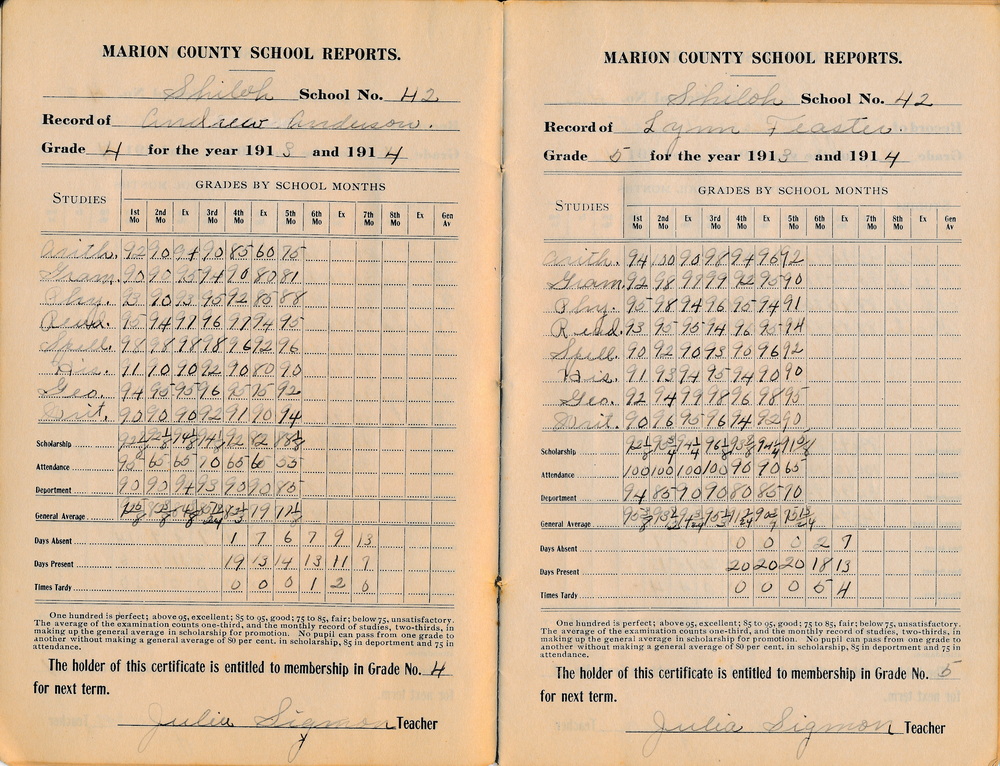 MARION COUNTY SCHOOL REPORTS.
Shiloh School No. 42
Record of Andrew Anderson.
Grade 4 for the year 1913 and 1914
STUDIES GRADES BY SCHOOL MONTHS
1st Mo 2nd Mo Ex 3rd Mo 4th Mo Ex 5th Mo 6th Mo Ex 7th Mo 8th Mo Ex Gen Av
Arith. 92 90 94 90 85 60 75
Gram. 90 90 95 94 90 80 81
Phy. 93 90 93 95 92 85 88
Read. 95 94 97 96 97 94 95
Spell. 98 98 98 98 96 92 96
His. 90 90 92 90 80 90
Geo. 94 95 95 96 95 75 92
Writ. 90 90 90 92 91 90 94
Scholarship 92 82
Attendance 95 65 65 70 65 65 55
Department 90 90 94 93 90 90 85
General Average 79
Days Absent 1 7 6 7 9 13
Days Present 19 13 14 13 11 7
Times Tardy 0 0 0 1 2 0
One hundred is perfect; above 95, excellent; 85 to 95, good; 75 to 85, fair; below 75, unsatisfactory.
The average of the examination counts one-third, and the monthly record of studies, two-thirds, in
making up the general average in scholarship for promotion. No pupil can pass from one grade to
another without making a general average of 80 per cent. in scholarship, 85 in department and 75 in
attendance.
The holder of this certificate is entitled to membership in Grade No. 4
for next term.
Julia Sigmon Teacher
MARION COUNTY SCHOOL REPORTS.
Shiloh School No. 42
Record of Lynn Feaster.
Grade 5 for the year 1913 and 1914
STUDIES GRADES BY SCHOOL MONTHS
1st Mo 2nd Mo Ex 3rd Mo 4th Mo Ex 5th Mo 6th Mo Ex 7th Mo 8th Mo Ex Gen Av
Arith. 94 90 98 94 96 92
Gram. 92 98 99 99 92 95 90
Phy. 95 98 94 96 95 94 91
Read. 93 95 95 94 96 95 94
Spell. 90 92 90 93 90 96 92
His. 91 93 94 95 94 90 90
Geo. 92 94 99 98 96 98 95
Writ. 90 96 95 96 94 92 90
Scholarship
Attendance 100 100 100 100 90 90 65
Department 94 85 90 90 80 85 90
General Average
Days Absent 0 0 0 2 7
Days Present 20 20 20 18 13
Times Tardy 0 0 0 5 4
One hundred is perfect; above 95, excellent; 85 to 95, good; 75 to 85, fair; below 75, unsatisfactory.
The average of the examination counts one-third, and the monthly record of studies, two-thirds, in
making up the general average in scholarship for promotion. No pupil can pass from one grade to
another without making a general average of 80 per cent. in scholarship, 85 in department and 75 in
attendance.
The holder of this certificate is entitled to membership in Grade No. 5
for next term.
Julia Sigmon Teacher